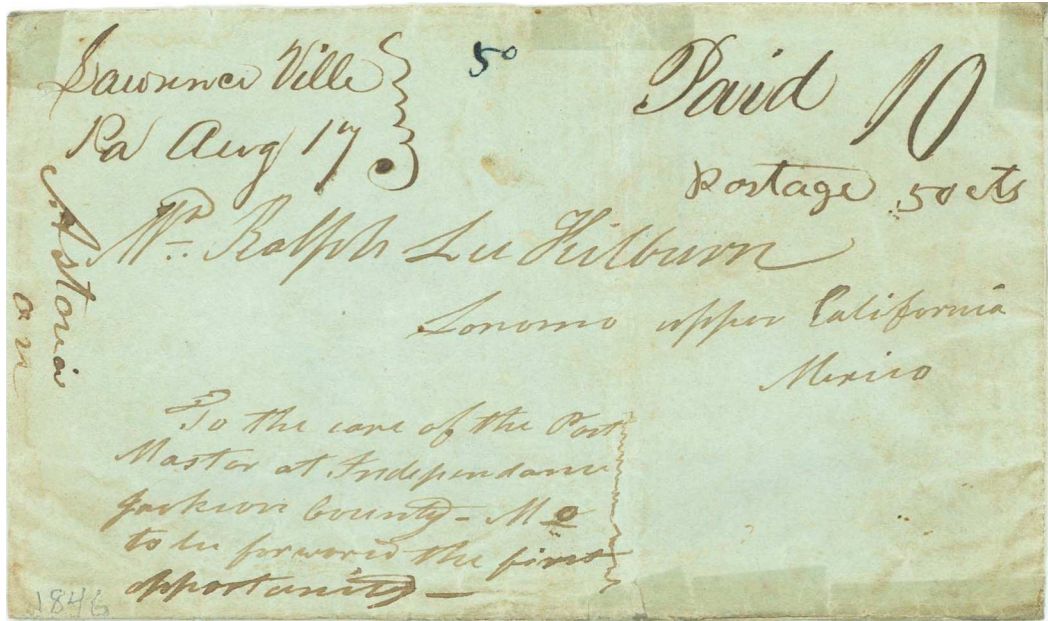 Lawrence Ville
Pa Aug 17
50
Paid 10
Postage 50 cts
Astoria
on
Mr. Ralph Lee Kilburn
Sonomo upper California
Mexico
To the care of the Post
Master at Independance
Jackson County - Mo
to be forword the first
opportunity -
1846